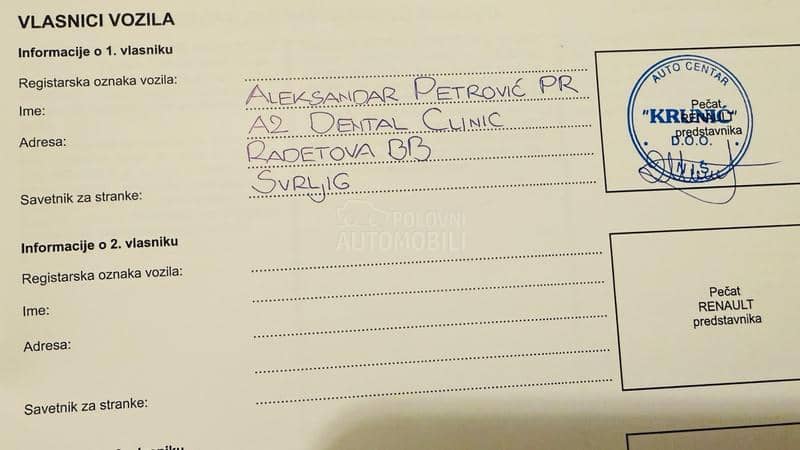 VLASNICI VOZILA
Informacije o 1. vlasniku
Registarska oznaka vozila:
Ime:
ALEKSANDAR PETROVIĆ PR
Adresa:
A2 DENTAL CLINIC
RADETOVA BB
Savetnik za stranke:
SVRLJIG
AUTO CENTAR
"KRUNIĆ"
D.O.O.
NIŠ
Pečat
RENAULT
predstavnika
POLOVNI
AUTOMOBILI
Informacije o 2. vlasniku
Registarska oznaka vozila:
Ime:
Adresa:
Savetnik za stranke:
Pečat
RENAULT
predstavnika